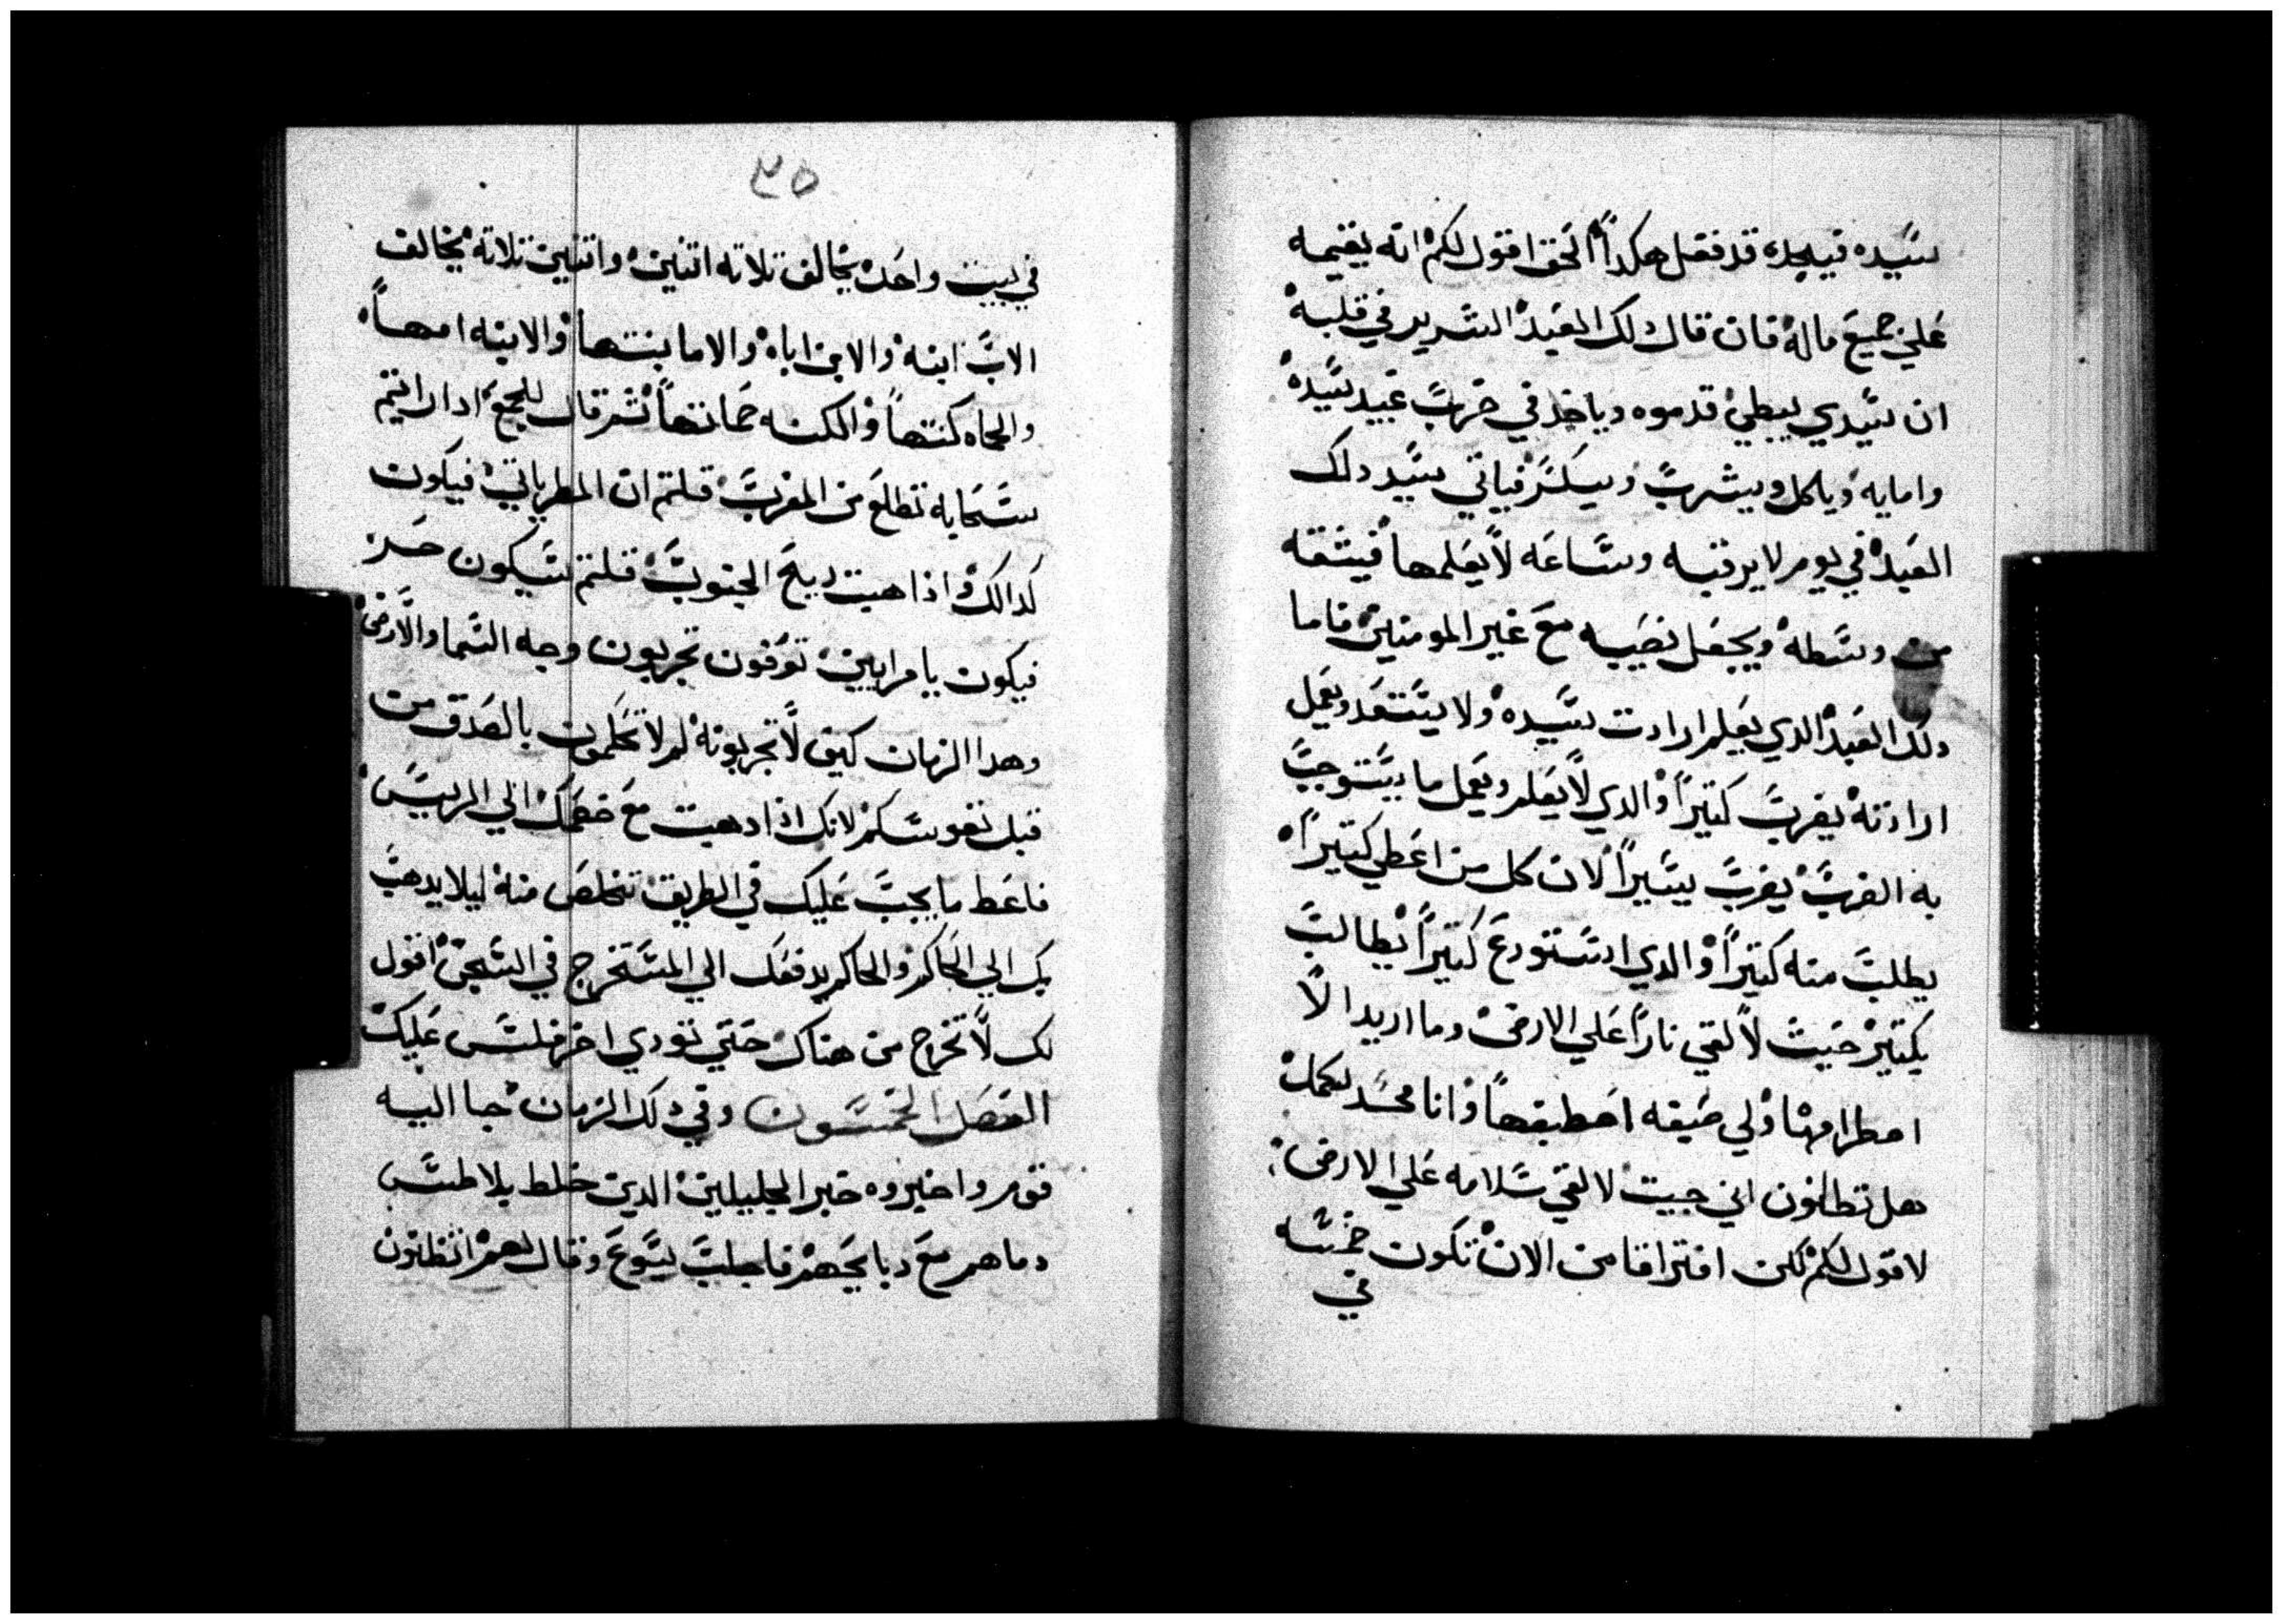 سيده فيجده قد فعل هكدا الحق اقول لكم انه يقيمه
علي جميع ماله فان قال دلك العبد الشرير في قلبه
ان سيدي يبطي قدومه وياخد في ضرب عبيد سيده
وامايه وياكل ويشرب ويسكر فياتي سيد دلك
العبد في يوم لا يرقبه وساعه لا يعلمها فيشقه
من وسطه ويجعل نصيبه مع غير المومنين فاما
دلك العبد الدي يعلم ارادت سيده ولا يستعد ويعمل
ارادته يضرب كتيرا والدي لا يعلم ويعمل ما يستوجب
به الضرب يضرب يسيرا لان كل من اعطي كتيرا
يطلب منه كتيرا والدي استودع كتيرا يطالب
بكتير جيت لالقي نارا علي الارض وما اريد الا
اضطرامها ولي صبغه اصطبغها وانا مجد لتكمل
هل تظنون اني جيت لالقي سلامه علي الارض
لاقول لكم لكن افتراقا من الان تكون خمسه
في
٣٥
في بيت واحد يخالف تلاته اتنين واتنين تلاته يخالف
الاب ابنه والابن اباه والاما بنتها والابنه امها
والحماه كنتها والكنه حماتها تم قال للجمع ادا رايتم
سحابه تطلع من المغرب قلتم ان المطر ياتي فيكون
كدالك واذا هبت ريح الجنوب قلتم سيكون حر
فيكون يا مرايين تعرفون تجربون وجه السما والارض
وهدا الزمان كيف لا تجربونه لم لا تحكمون بالصدق من
قبل نفوسكم لانك اذا دهبت مع خصمك الي الرييس
فاعط ما يجب عليك في الطريق تتخلص منه ليلا يدهب
بك الي الحاكم والحاكم يدفعك الي المستخرج في السجن اقول
لك لا تخرج من هناك حتي تودي اخر فلس عليك
الفصل الخمسون وفي دلك الزمان جا اليه
قوم واخبروه خبر الجليليين الدين خلط بيلاطس
دماهم مع دبايحهم فاجاب يسوع وقال لهم اتظنون